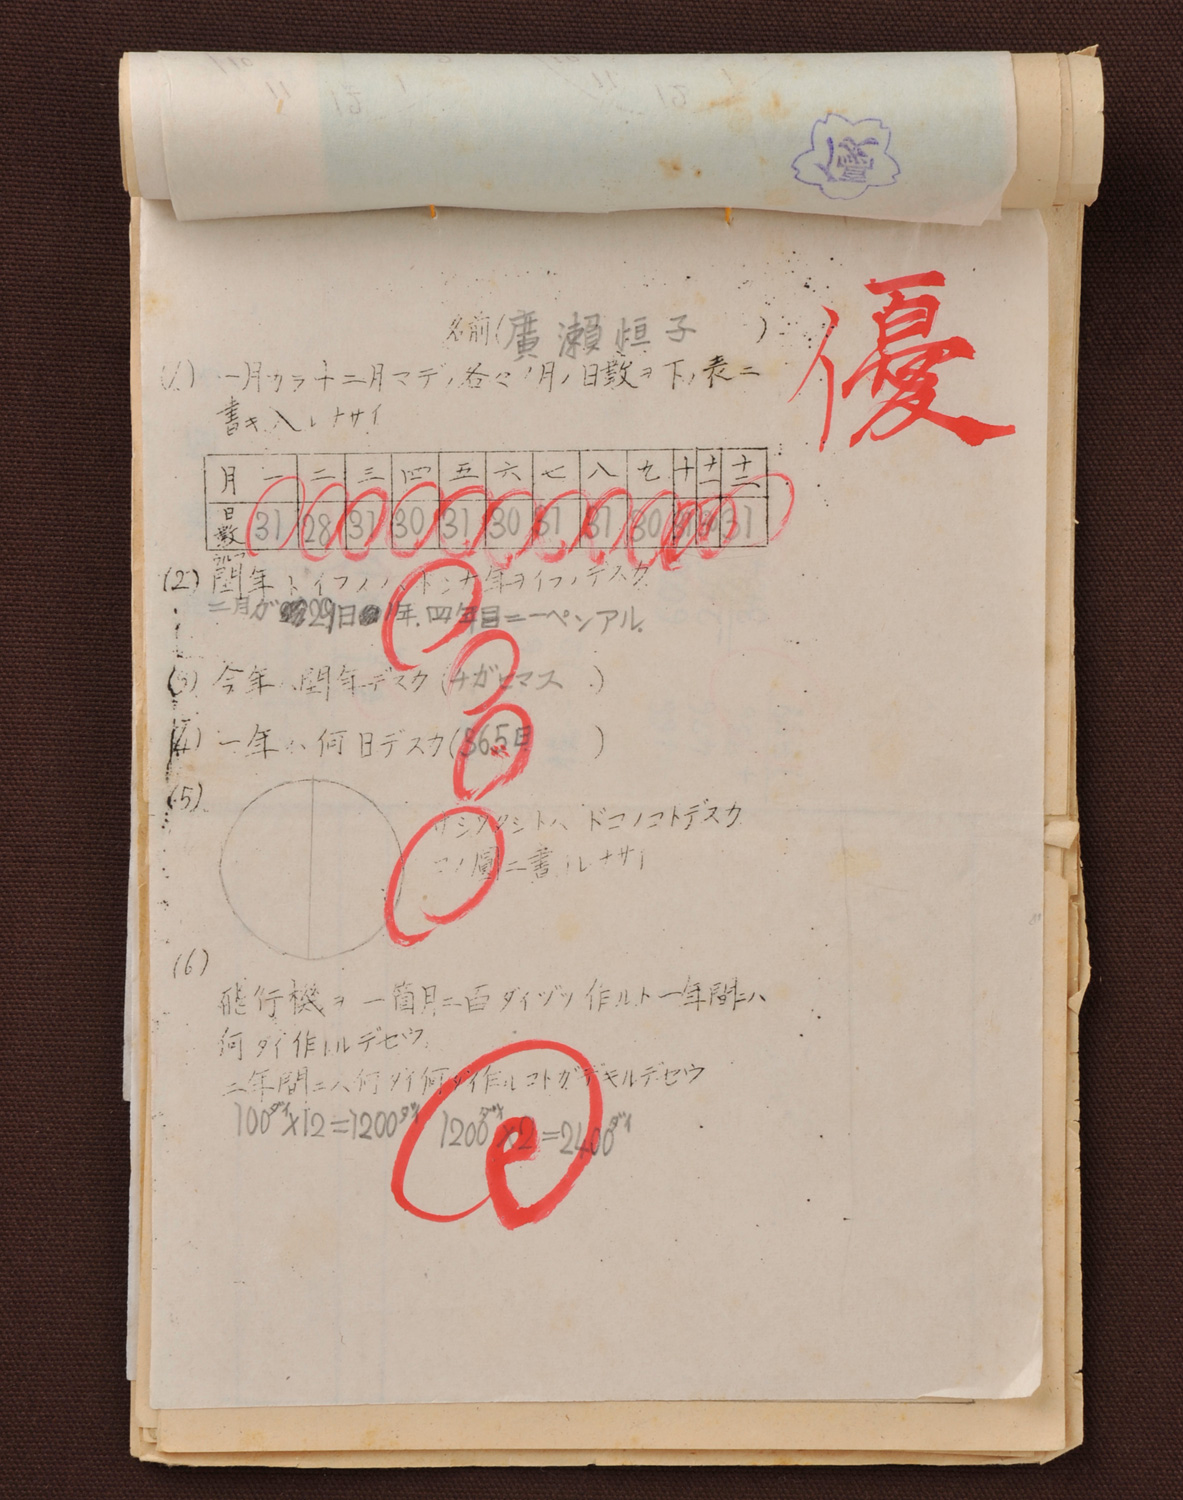 優
優
名前(廣瀨恒子)
(1) 一月カラ十二月マデノ各々ノ月ノ日数ヲ下ノ表ニ
書キ入レナサイ
月 一 二 三 四 五 六 七 八 九 十 十一 十二
日数 31 28 31 30 31 30 31 31 30 31 30 31
(2) 閏年トイフノハドンナ年ヲイフノデスカ
二月が29日 年.四年目ニ一ペンアル.
(3) 今年ハ閏年デスカ(チガヒマス.)
(4) 一年ハ何日デスカ(365日)
(5) サシワタシトハドコノコトデスカ
コノ圖ニ書入レナサイ
(6)
飛行機ヲ一箇月ニ百ダイヅツ作ルト一年間ニハ
何ダイ作レルデセウ
二年間ニハ何ダイ何ダイ作ルコトガデキルデセウ
100ダイ×12=1200ダイ 1200ダイ×2=2400ダイ